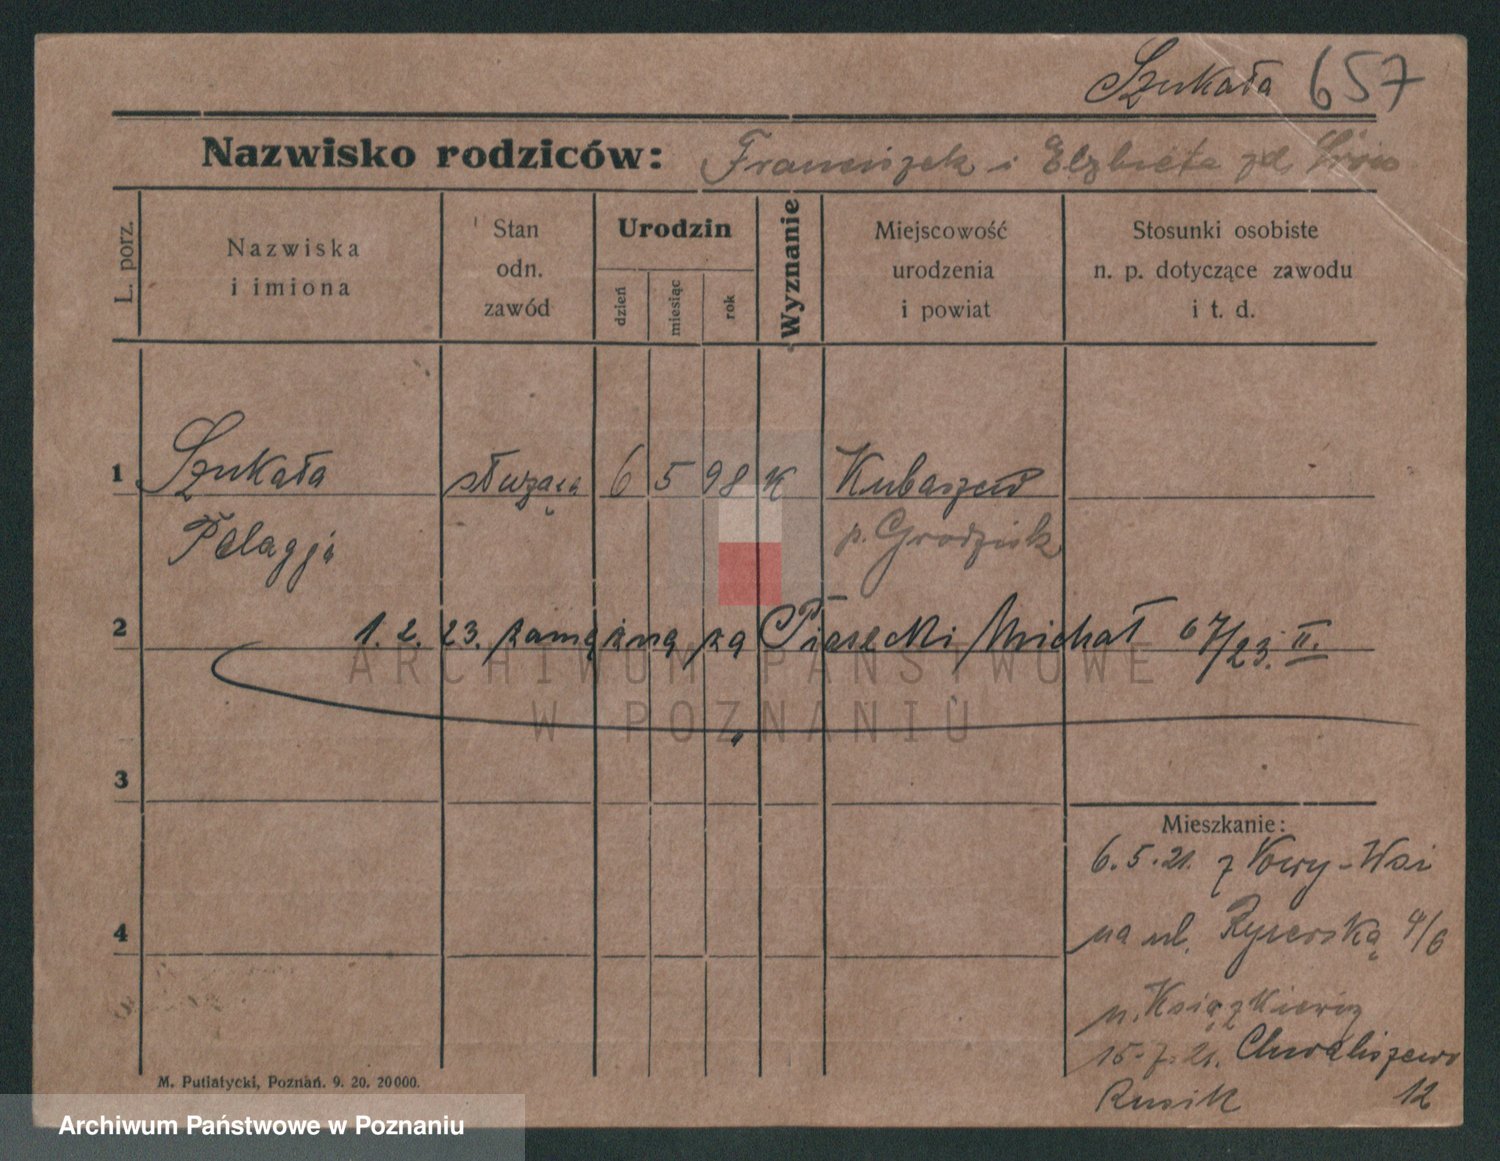 Szukała 657
Nazwisko rodziców: Franciszek i Elżbieta zd
L. porz.
Nazwiska
i imiona
Stan
odn.
zawód
Urodzin
dzień
miesiąc
rok
Wyznanie
Miejscowość
urodzenia
i powiat
Stosunki osobiste
n. p. dotyczące zawodu
i t. d.
1 Szukała służąca 6 5 98 K Kubaszewo
Pelagja p. Grodzisk
2 1. 2. 23. zamężna za Piasecki Michał 67/23. II.
ARCHIWUM PAŃSTWOWE
W POZNANIU
3
Mieszkanie:
6.5.21. z Nowy-Wsi
4 na ul. 4/6
u. Książkiewicz
15.7.21. Chwaliszewo
Rusik 12
M. Putiatycki, Poznań. 9. 20. 20000.
Archiwum Państwowe w Poznaniu